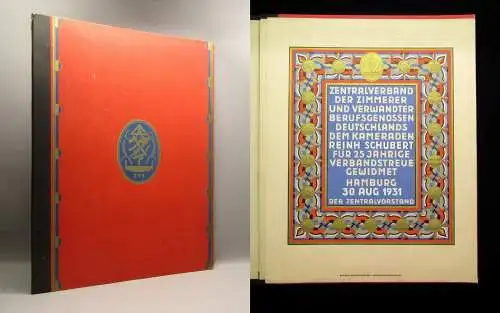 ZENTRALVERBAND
DER ZIMMERER
UND VERWANDTER
BERUFSGENOSSEN
DEUTSCHLANDS
DEM KAMERADEN
REINH SCHUBERT
FÜR 25 JÄHRIGE
VERBANDSTREUE
GEWIDMET
HAMBURG
30 AUG 1931
DER ZENTRALVORSTAND